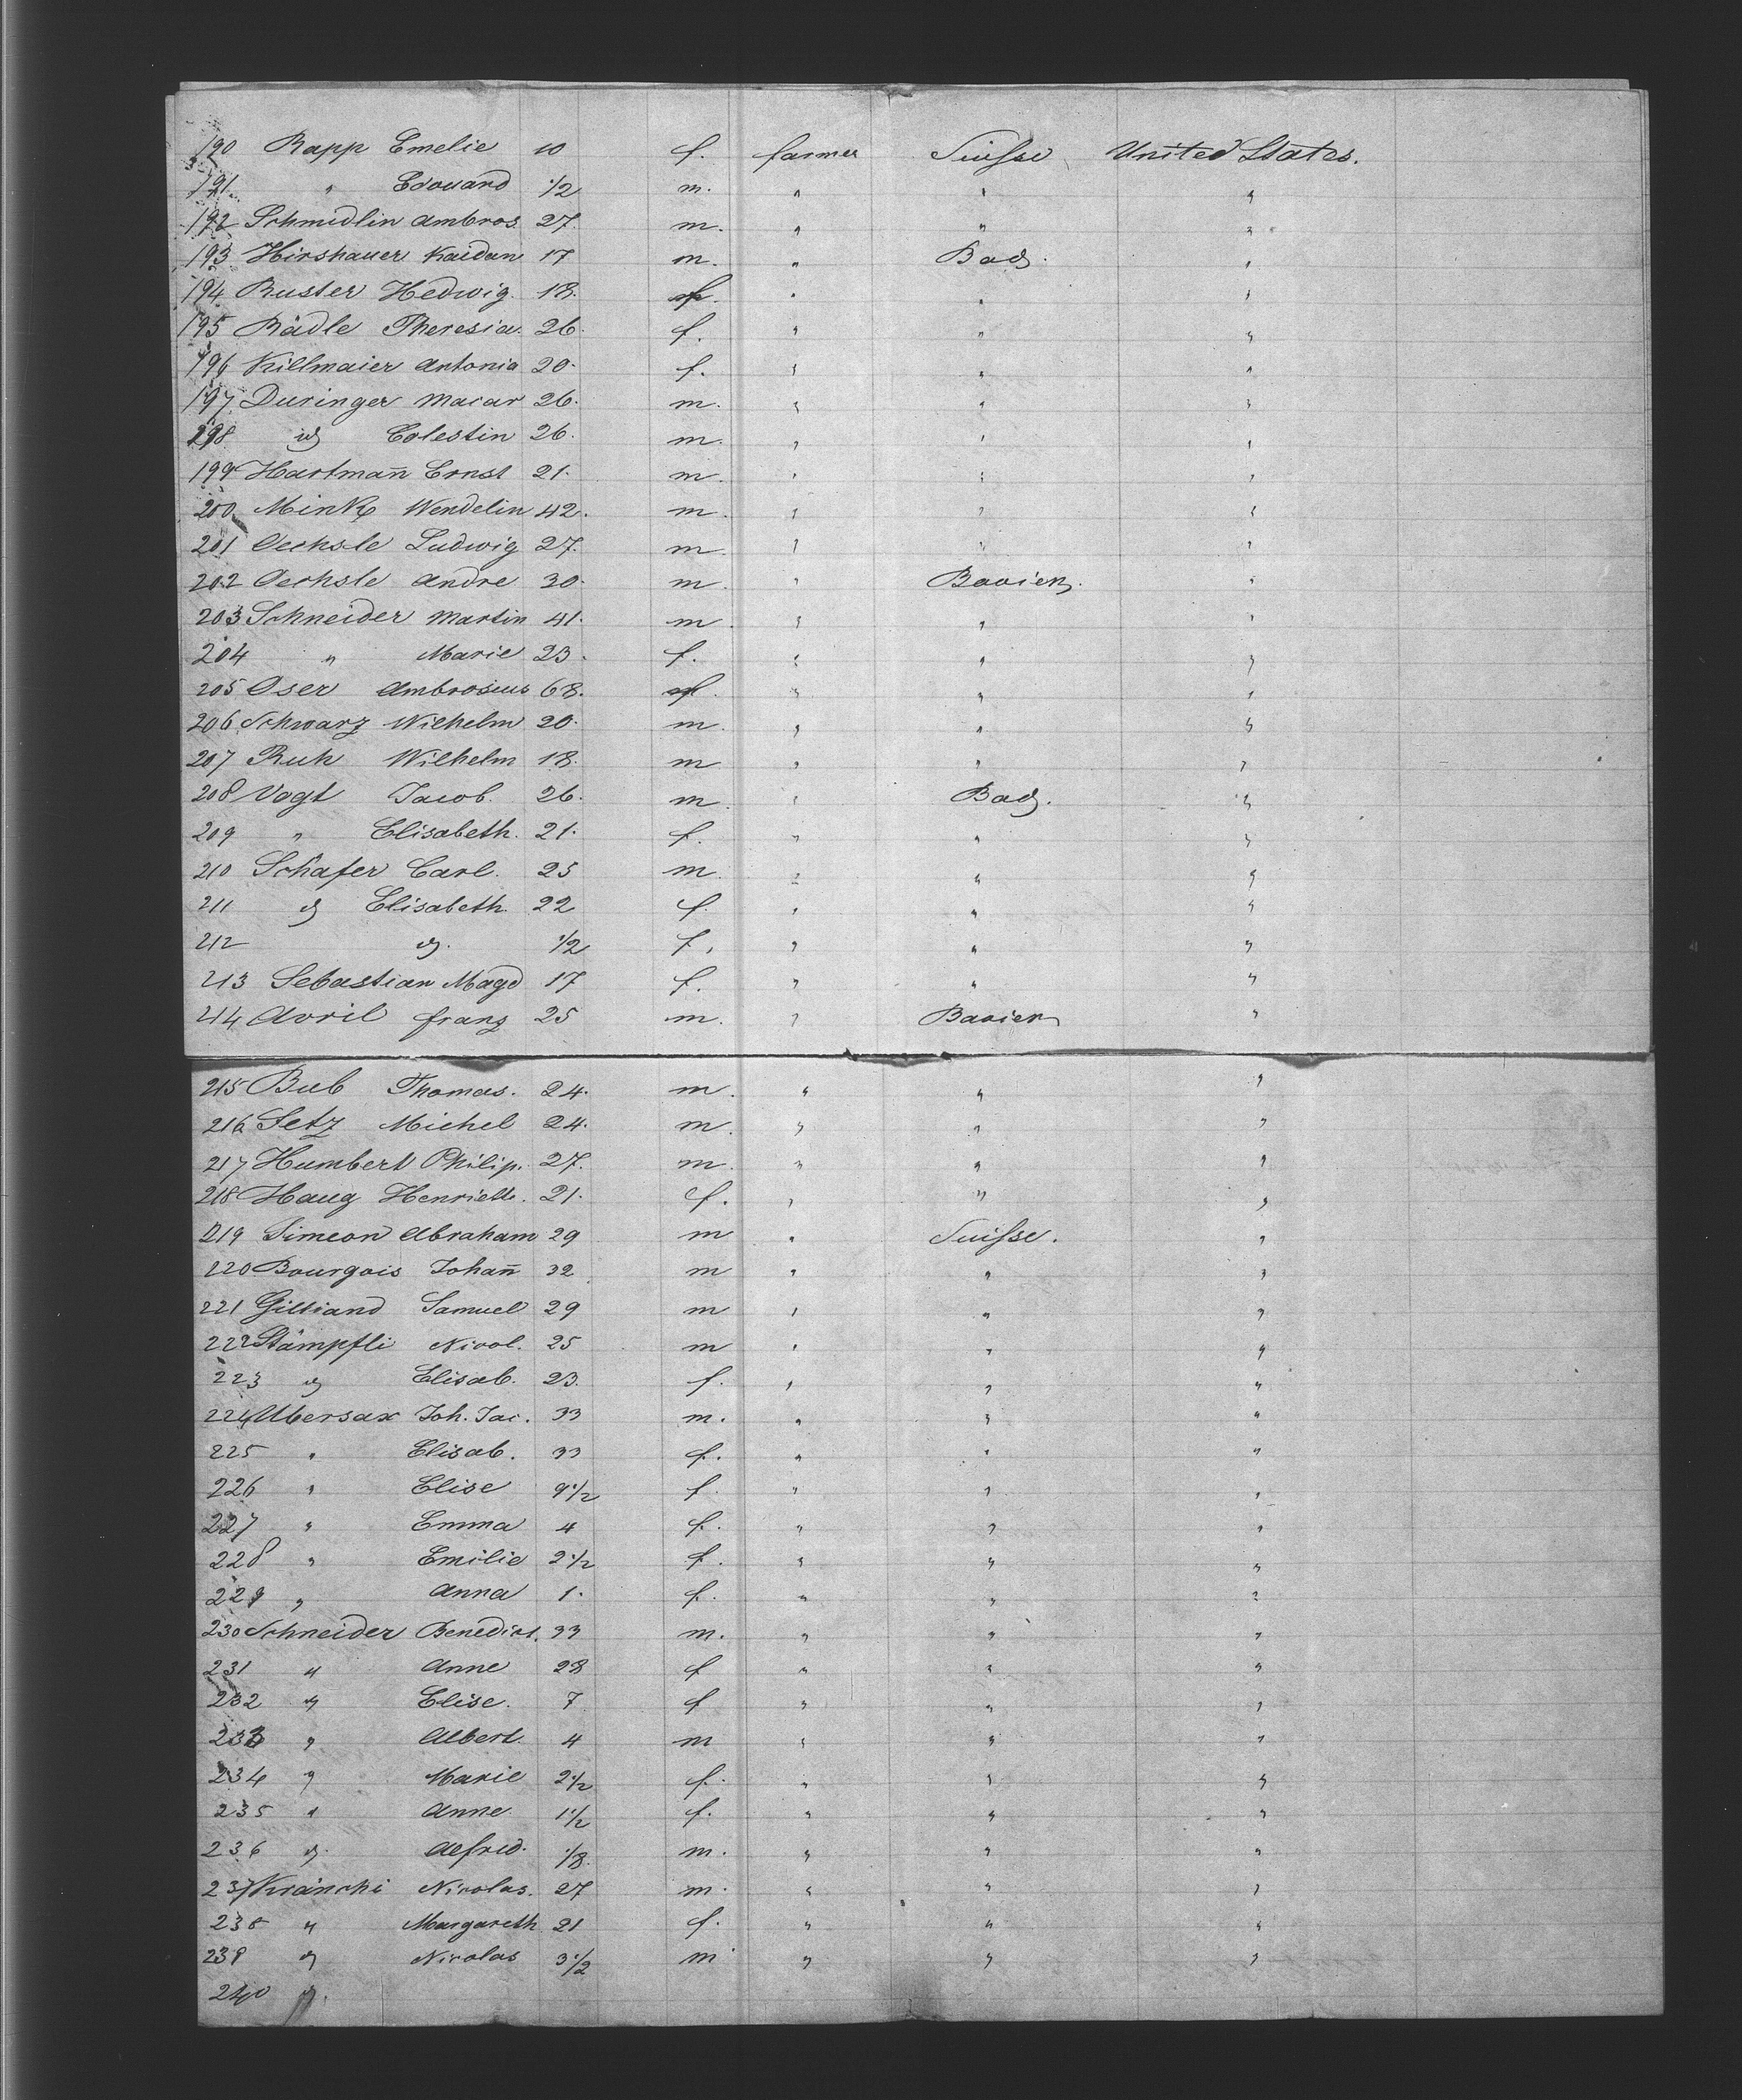 190 Rapp Emelie 10 f. farmer Suisse United States.
191 " Edouard 1/2 m. " " "
192 Schmidlin Ambros. 27. m. " " "
193 Hirshauer 17 m. " Bad. "
194 Ruster Hedwig. 18. f. " " "
195 Rädle Theresia. 26. f. " " "
196 Killmaier Antonia 20. f. " " "
197 Duringer Macar 26. m. " " "
198 id Colestin 26. m. " " "
199 Hartmañ Ernst 21. m. " " "
200 Mink Wendelin 42. m. " " "
201 Oechsle Ludwig 27. m. " " "
202 Oechsle Andre 30. m. " Bavier. "
203 Schneider Martin 41. m. " " "
204 " Marie 23. f. " " "
205 Oser Ambrosius 68. " " "
206 Schwarz Wilhelm 20. m. " " "
207 Ruh Wilhelm 18. m " " "
208 Vogt Jacob. 26. m. " Bad. "
209 " Elisabeth. 21. f. " " "
210 Schäfer Carl. 25 m. " " "
211 id Elisabeth. 22 f. " " "
212 id. 1/2 f. " " "
213 Sebastian Magd 17 f. " " "
214 Avril franz 25 m. " Bavier "
215 Bub Thomas. 24. m. " " "
216 Setz Michel 24. m. " " "
217 Humbert Philip. 27. m. " " "
218 Haug Henriette. 21. f. " " "
219 Simeon Abraham 29 m " Suisse. "
220 Bourgois Johañ 32 m " " "
221 Gilliand Samuel 29 m " " "
222 Stämpfli Nicol. 25 m " " "
223 id Elisab. 23. f. " " "
224 Ubersax Joh. Jac. 33 m. " " "
225 " Elisab. 33 f. " " "
226 " Elise 9 1/2 f. " " "
227 " Emma 4 f. " " "
228 " Emilie 2 1/2 f. " " "
229 " Anna 1. f. " " "
230 Schneider Benedict. 33 m. " " "
231 " Anne 28 f " " "
232 " Elise. 7 f " " "
233 " Albert. 4 m " " "
234 " Marie 2 1/2 f. " " "
235 " Anne. 1 1/2 f. " " "
236 id. Alfred. 1/8. m. " " "
237 Kränchi Nicolas. 27 m. " " "
238 " Margareth 21 f. " " "
239 id Nicolas 3 1/2 m " " "
240 id.